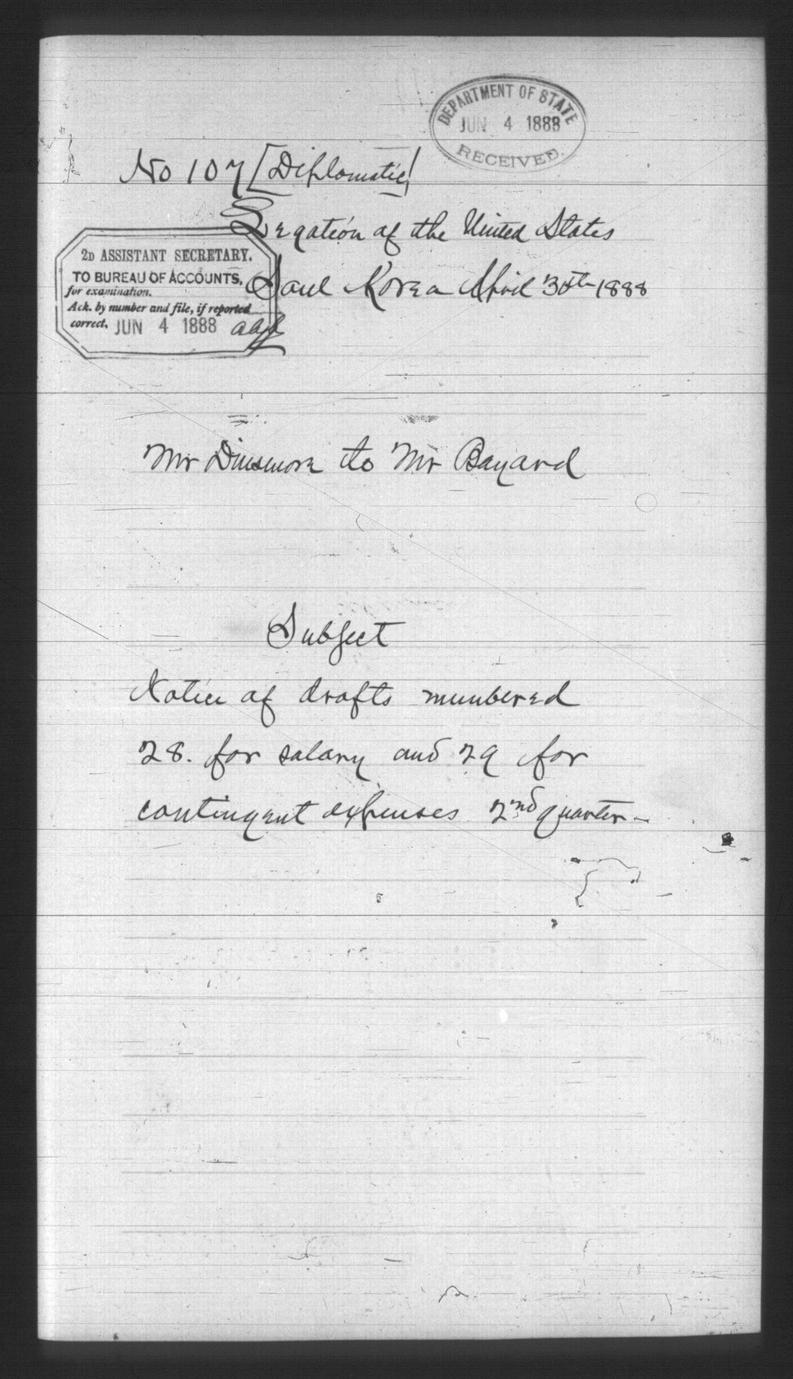 DEPARTMENT OF STATE
JUN 4 1888
RECEIVED.
No 107 [Diplomatic]
Legation of the United States
Saul Korea April 30th 1888
2D ASSISTANT SECRETARY.
TO BUREAU OF ACCOUNTS,
for examination.
Ack. by number and file, if reported
correct. JUN 4 1888
Mr Dinsmore to Mr Bayard
Subject
Notice of drafts numbered
28. for salary and 29 for
contingent expenses 2nd quarter-